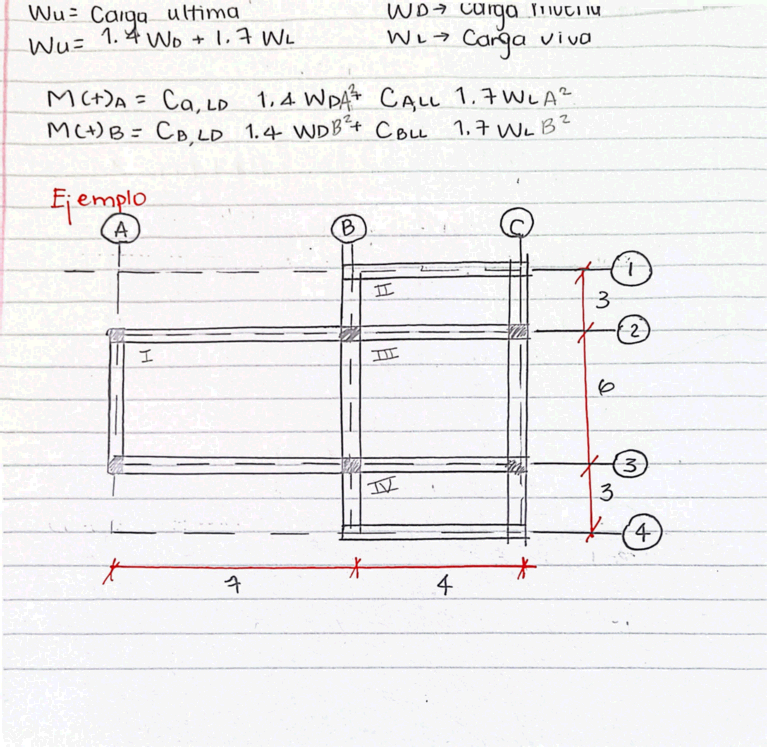 Wu = Carga ultima
WD → carga muerta
Wu = 1.4 WD + 1.7 WL
WL → Carga viva
M(+)A = Ca,LD 1.4 WDA² + CA,LL 1.7 WLA²
M(+)B = CB,LD 1.4 WDB² + CBLL 1.7 WLB²
Ejemplo
A B C
1
II
3
2
I III
6
3
IV
3
4
7 4